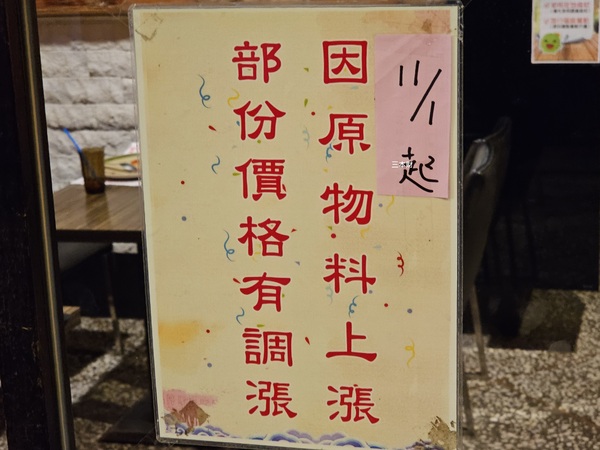 11/1起
因原物料上漲
部份價格有調漲